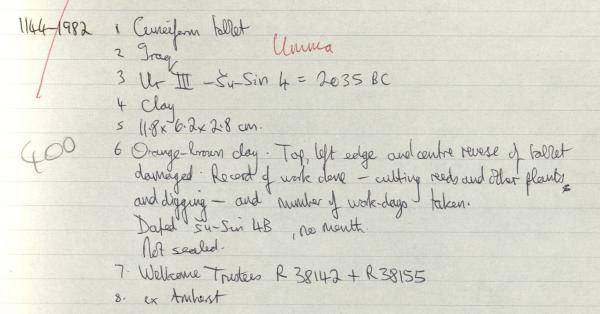 1144-1982 1 Cuneiform tablet
Umma
2 Iraq
3 Ur III - Šu-Sin 4 = 2035 BC
4 Clay
5 11.8 x 6.2 x 2.8 cm.
400
6 Orange-brown clay. Top, left edge and centre reverse of tablet
damaged. Record of work done - cutting reeds and other plants
and digging - and number of work-days taken.
Dated Šu-Sin 4B, no month.
Not sealed.
7. Wellcome Trustees R 38142 + R38155
8. ex Amherst